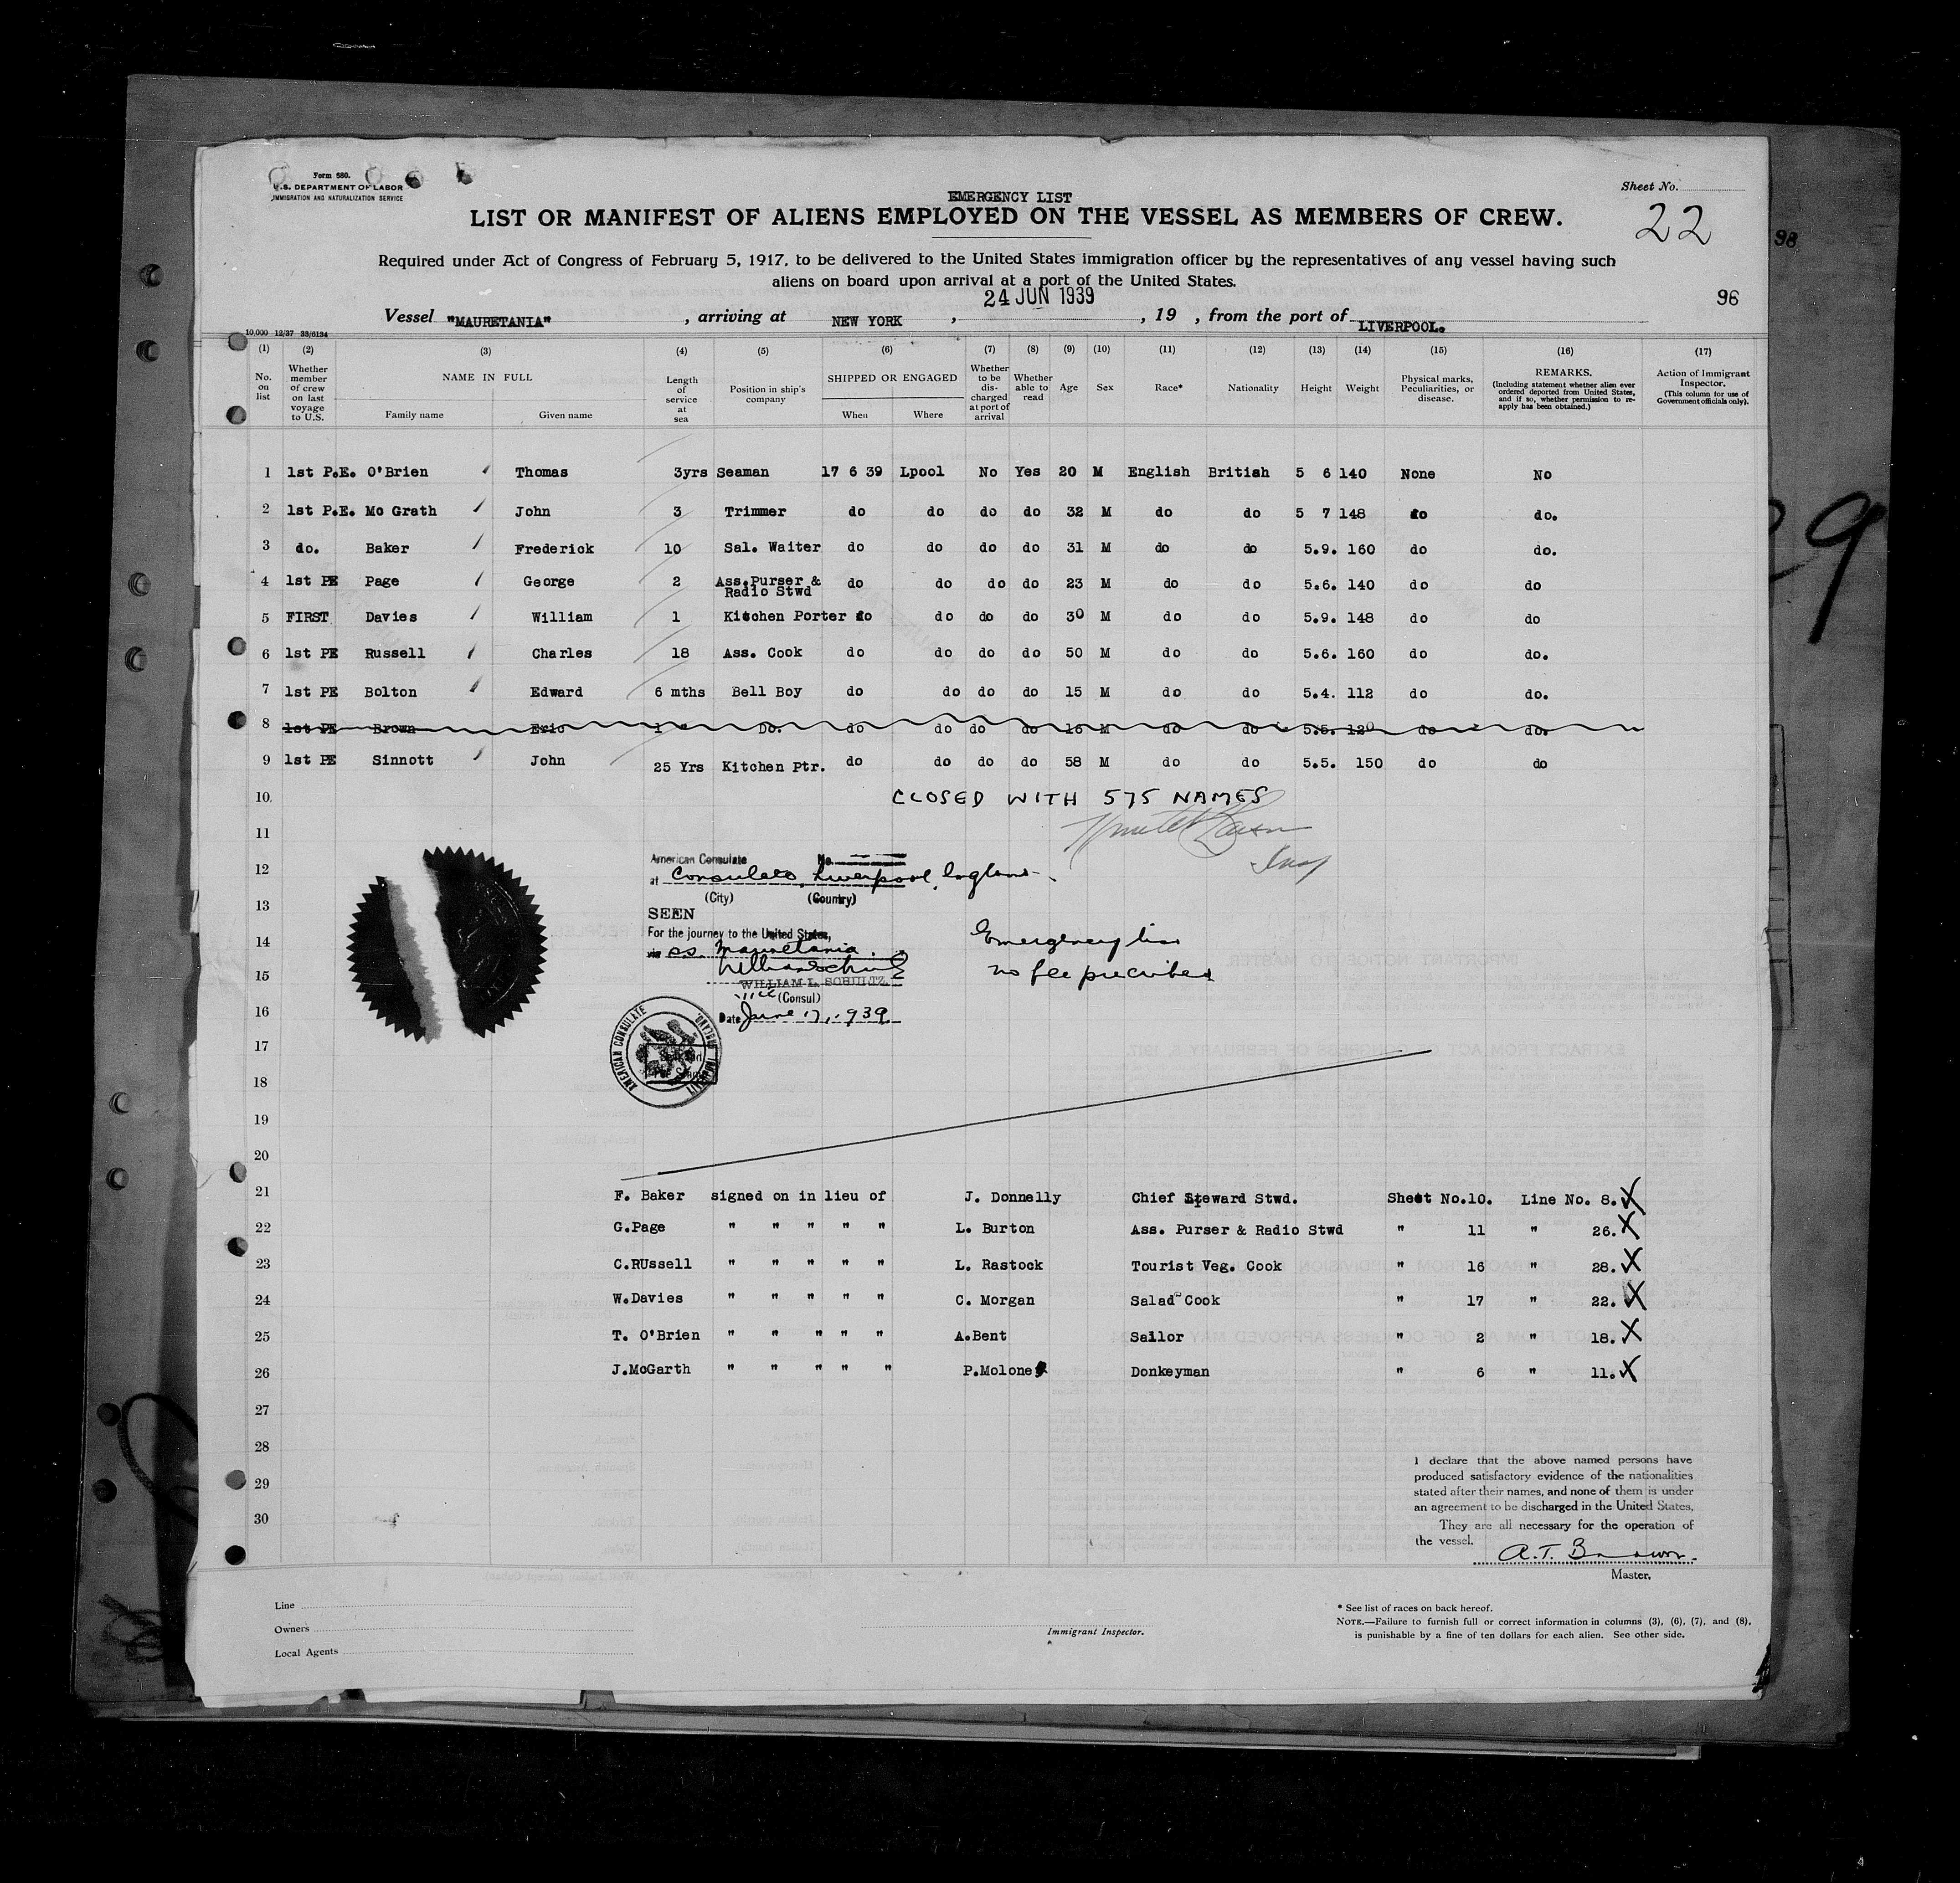 Form 680.
U.S. DEPARTMENT OF LABOR
IMMIGRATION AND NATURALIZATION SERVICE
Sheet No.
22
98
96
EMERGENCY LIST
LIST OR MANIFEST OF ALIENS EMPLOYED ON THE VESSEL AS MEMBERS OF CREW.
Required under Act of Congress of February 5, 1917, to be delivered to the United States immigration officer by the representatives of any vessel having such
aliens on board upon arrival at a port of the United States.
24 JUN 1939
Vessel "MAURETANIA", arriving at NEW YORK, , 19 , from the port of LIVERPOOL.
10,000 12/37 33/6134
(1) (2) (3) (4) (5) (6) (7) (8) (9) (10) (11) (12) (13) (14) (15) (16) (17)
No. on list
Whether member of crew on last voyage to U.S.
NAME IN FULL
Family name Given name
Length of service at sea
Position in ship's company
SHIPPED OR ENGAGED
When Where
Whether to be discharged at port of arrival
Whether able to read
Age
Sex
Race*
Nationality
Height
Weight
Physical marks, Peculiarities, or disease.
REMARKS.
(Including statement whether alien ever ordered deported from United States, and if so, whether permission to re-apply has been obtained.)
Action of Immigrant Inspector.
(This column for use of Government officials only).
1 1st P.E. O'Brien Thomas 3yrs Seaman 17 6 39 Lpool No Yes 20 M English British 5 6 140 None No
2 1st P.E. Mc Grath John 3 Trimmer do do do do 32 M do do 5 7 148 do do.
3 do. Baker Frederick 10 Sal. Waiter do do do do 31 M do do 5.9. 160 do do.
4 1st PE Page George 2 Ass.Purser & Radio Stwd do do do do 23 M do do 5.6. 140 do do
5 FIRST Davies William 1 Kitchen Porter do do do do 30 M do do 5.9. 148 do do
6 1st PE Russell Charles 18 Ass. Cook do do do do 50 M do do 5.6. 160 do do.
7 1st PE Bolton Edward 6 mths Bell Boy do do do do 15 M do do 5.4. 112 do do.
8 1st PE Brown Eric 1 " Do. do do do do 16 M do do 5.5. 120 do do.
9 1st PE Sinnott John 25 Yrs Kitchen Ptr. do do do do 58 M do do 5.5. 150 do do
10 CLOSED WITH 575 NAMES
11
12
13
14
15
16
17
18
19
20
American Consulate No.
at Consulate, Liverpool, England
(City) (Country)
SEEN
For the journey to the United States,
via ss. Mauretania
WILLIAM L. SCHULTZ
Vice (Consul)
Date June 17, 1939
AMERICAN CONSULATE
Emergency list
no fee prescribed
21 F. Baker signed on in lieu of J. Donnelly Chief Steward Stwd. Sheet No.10. Line No. 8. X
22 G.Page " " " " " L. Burton Ass. Purser & Radio Stwd " 11 " 26. X
23 C.RUssell " " " " " L. Rastock Tourist Veg. Cook " 16 " 28. X
24 W.Davies " " " " " C. Morgan Salad Cook " 17 " 22. X
25 T. O'Brien " " " " " A.Bent Sailor " 2 " 18. X
26 J.McGarth " " " " " P.Moloney Donkeyman " 6 " 11. X
27
28
29
30
I declare that the above named persons have
produced satisfactory evidence of the nationalities
stated after their names, and none of them is under
an agreement to be discharged in the United States.
They are all necessary for the operation of
the vessel.
A.T. Brown.
Master.
Line
Owners
Local Agents
Immigrant Inspector.
* See list of races on back hereof.
NOTE.—Failure to furnish full or correct information in columns (3), (6), (7), and (8),
is punishable by a fine of ten dollars for each alien. See other side.